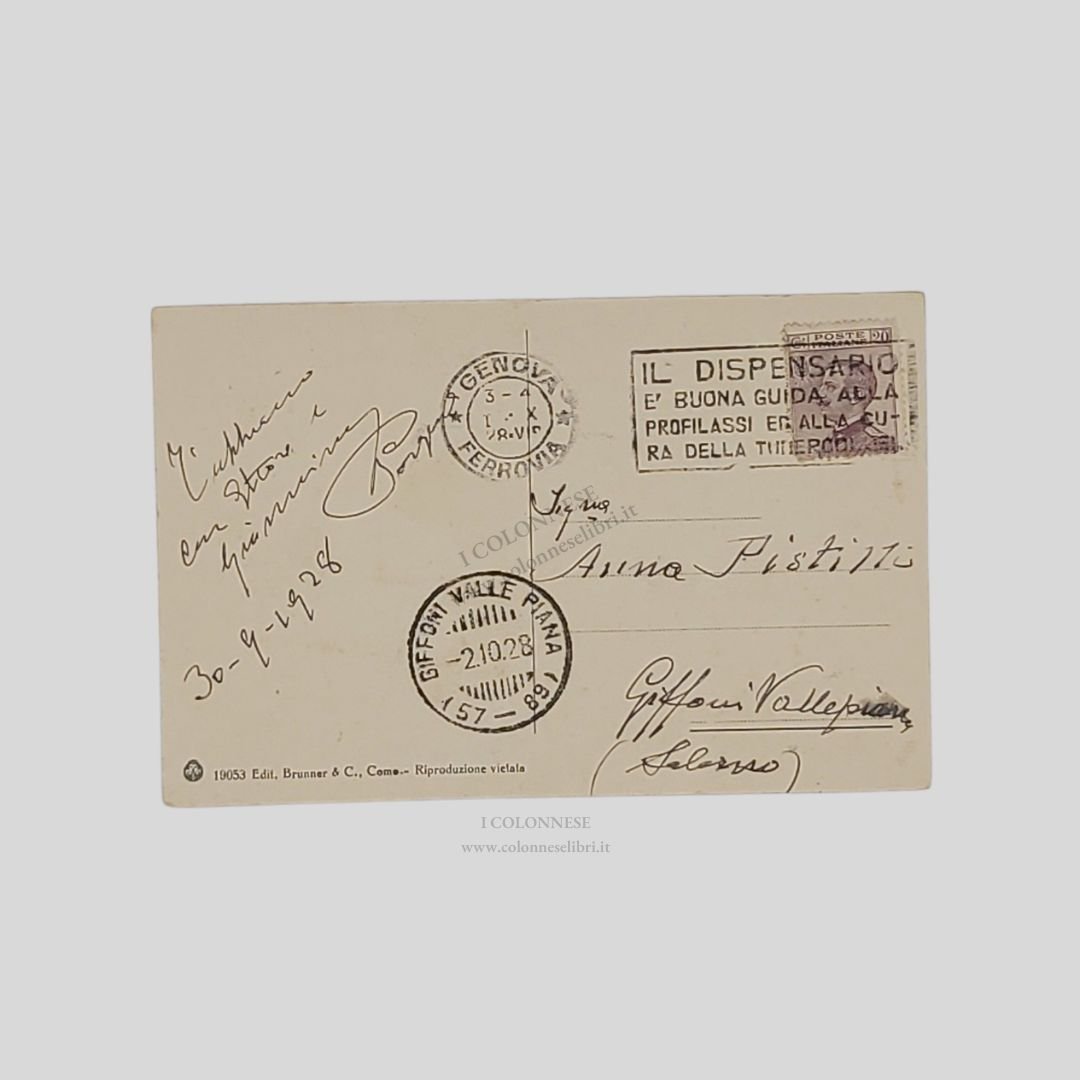 con Ettore e
30-9-1928
GENOVA
3-4
X
FERROVIA
POSTE 20
ITALIANE
IL DISPENSARIO
E' BUONA GUIDA ALLA
PROFILASSI ED ALLA CU-
RA DELLA TUBERCOLOSI
Sig.na
Anna Pistilli
GIFFONI VALLE PIANA
-2.10.28
(57-89)
Giffoni Vallepiana
(Salerno)
19053 Edit. Brunner & C., Como.- Riproduzione vietata
I COLONNESE
www.colonneselibri.it
I COLONNESE
www.colonneselibri.it